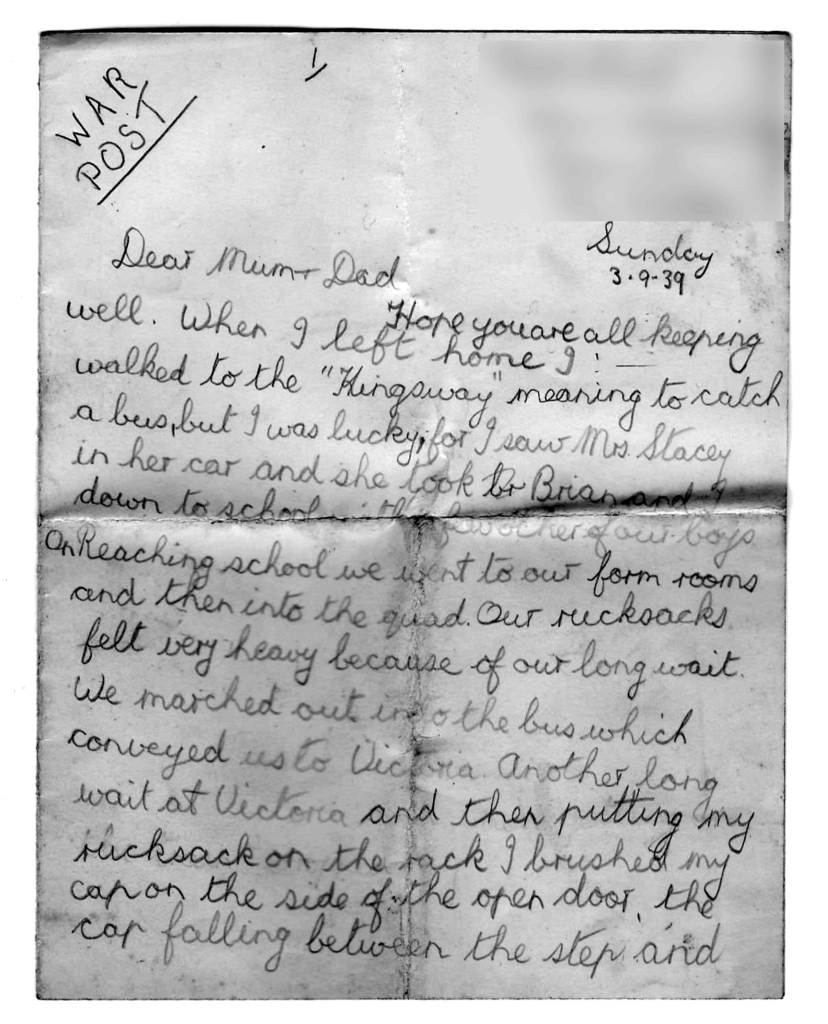 1
WAR
POST
Sunday
3.9.39
Dear Mum + Dad
Hope you are all keeping
well. When I left home I
walked to the "Kingsway" meaning to catch
a bus, but I was lucky, for I saw Mrs. Stacey
in her car and she took Brian and I
down to school other of our boys
On Reaching school we went to our form rooms
and then into the quad. Our rucksacks
felt very heavy because of our long wait.
We marched out into the bus which
conveyed us to Victoria. Another long
wait at Victoria and then putting my
rucksack on the rack I brushed my
cap on the side of the open door, the
cap falling between the step and